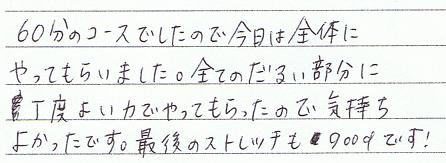 60分のコースでしたので今日は全体に
やってもらいました。全てのだるい部分に
丁度よい力でやってもらったので気持ち
よかったです。最後のストレッチもgoodです!